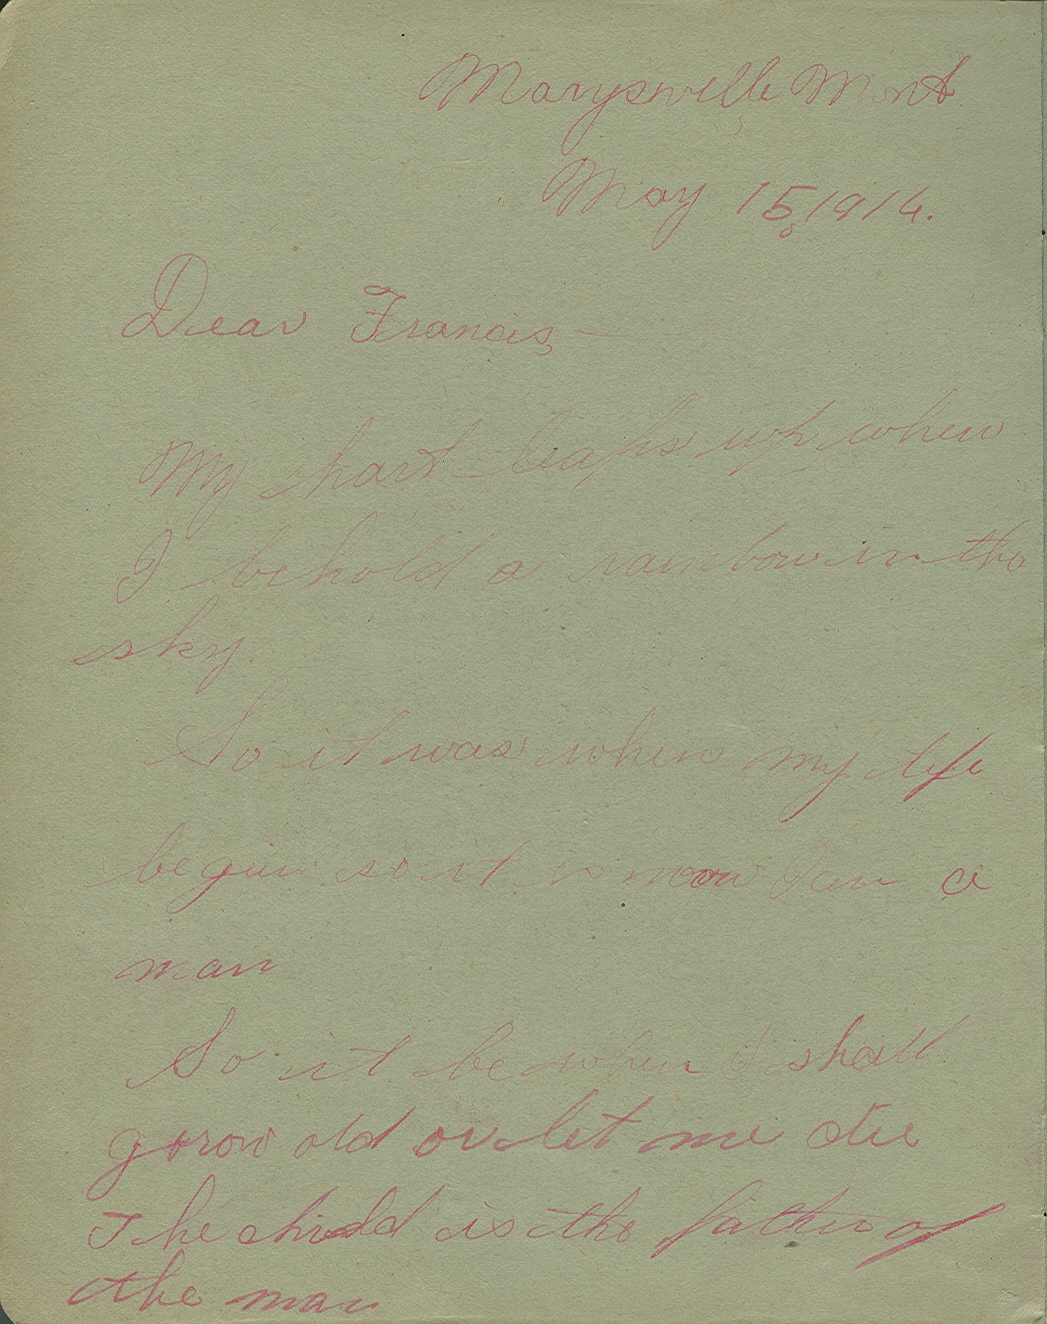 Marysville Mont.
May 15, 1916.
Dear Francis,—
My hart leaps up when
I behold a rainbow in the
sky
So it was when my life
begun so it is now I am a
man
So it be when I shall
grow old or let me die
The child is the father of
the man